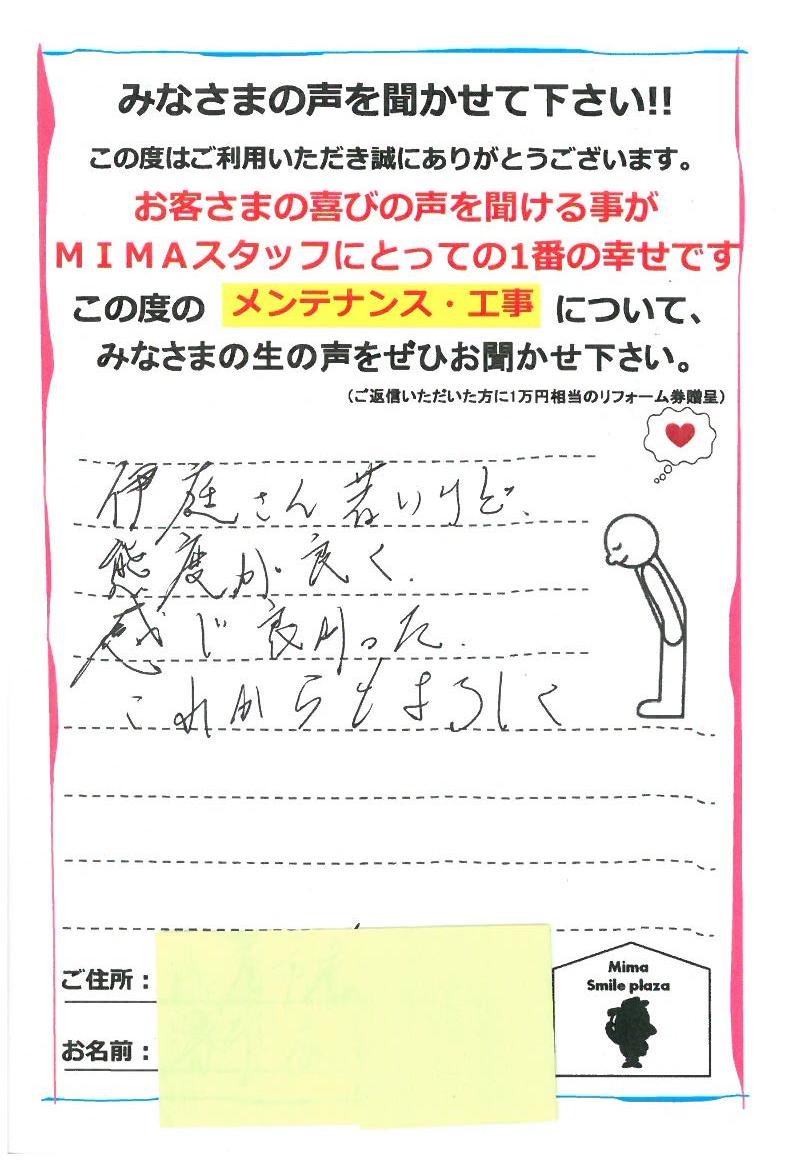 みなさまの声を聞かせて下さい!!
この度はご利用いただき誠にありがとうございます。
お客さまの喜びの声を聞ける事が
ＭＩＭＡスタッフにとっての1番の幸せです
この度の メンテナンス・工事 について、
みなさまの生の声をぜひお聞かせ下さい。
（ご返信いただいた方に1万円相当のリフォーム券贈呈）
伊庭さん若いけど、
態度が良く、
感じ良かった。
これからもよろしく
ご住所：
お名前：
Mima
Smile plaza